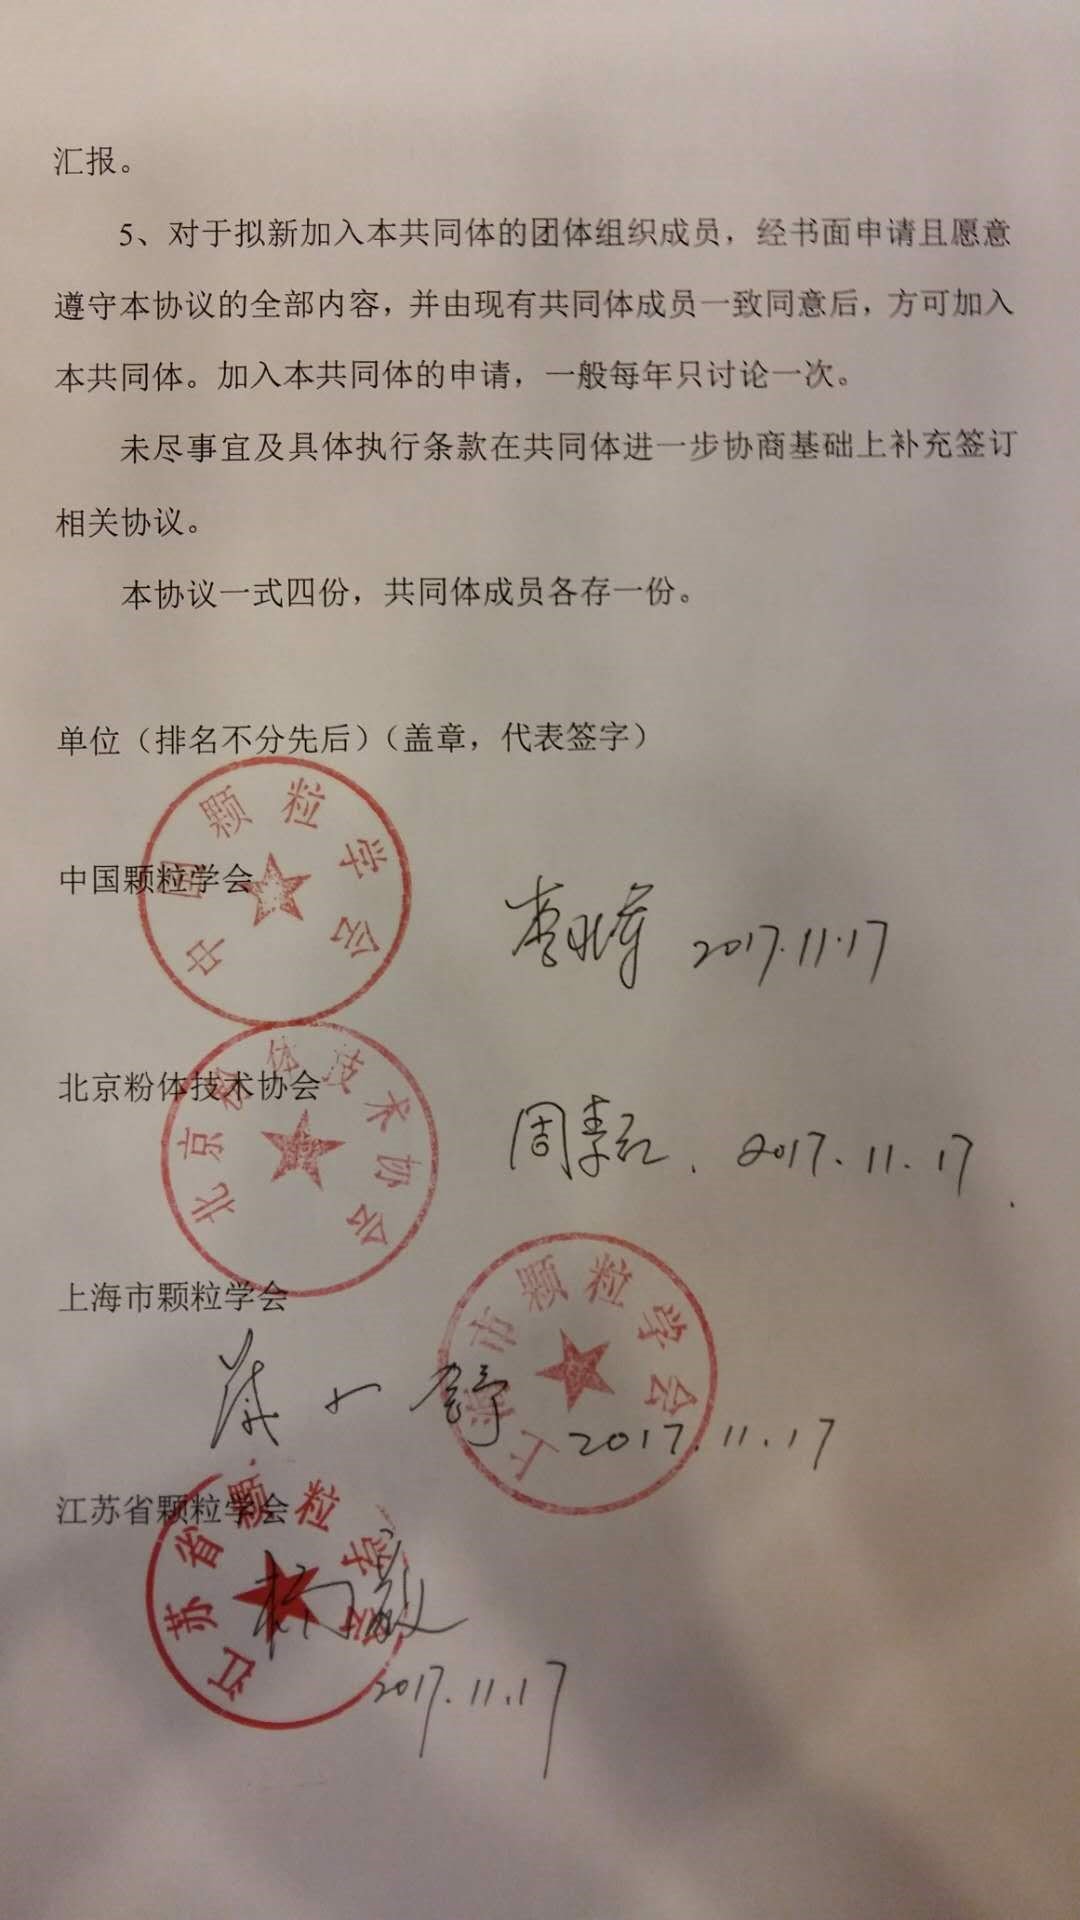 汇报。
5、对于拟新加入本共同体的团体组织成员，经书面申请且愿意
遵守本协议的全部内容，并由现有共同体成员一致同意后，方可加入
本共同体。加入本共同体的申请，一般每年只讨论一次。
未尽事宜及具体执行条款在共同体进一步协商基础上补充签订
相关协议。
本协议一式四份，共同体成员各存一份。
单位（排名不分先后）（盖章，代表签字）
中国颗粒学会
中国颗粒学会
2017.11.17
北京粉体技术协会
北京粉体技术协会
2017.11.17
上海市颗粒学会
上海市颗粒学会
2017.11.17
江苏省颗粒学会
江苏省颗粒学会
2017.11.17